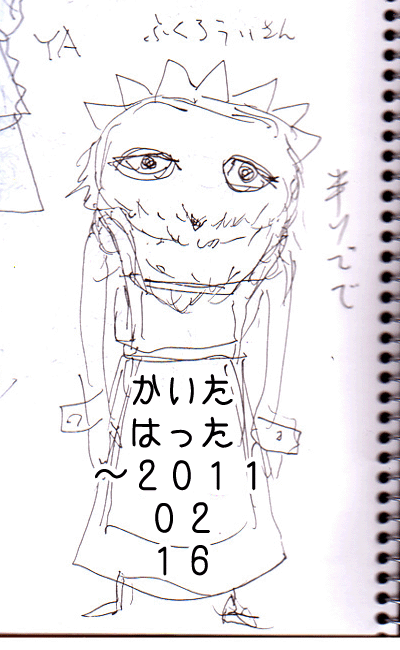 YA
ふくろういさん
かいた
はった
～2011
02
16